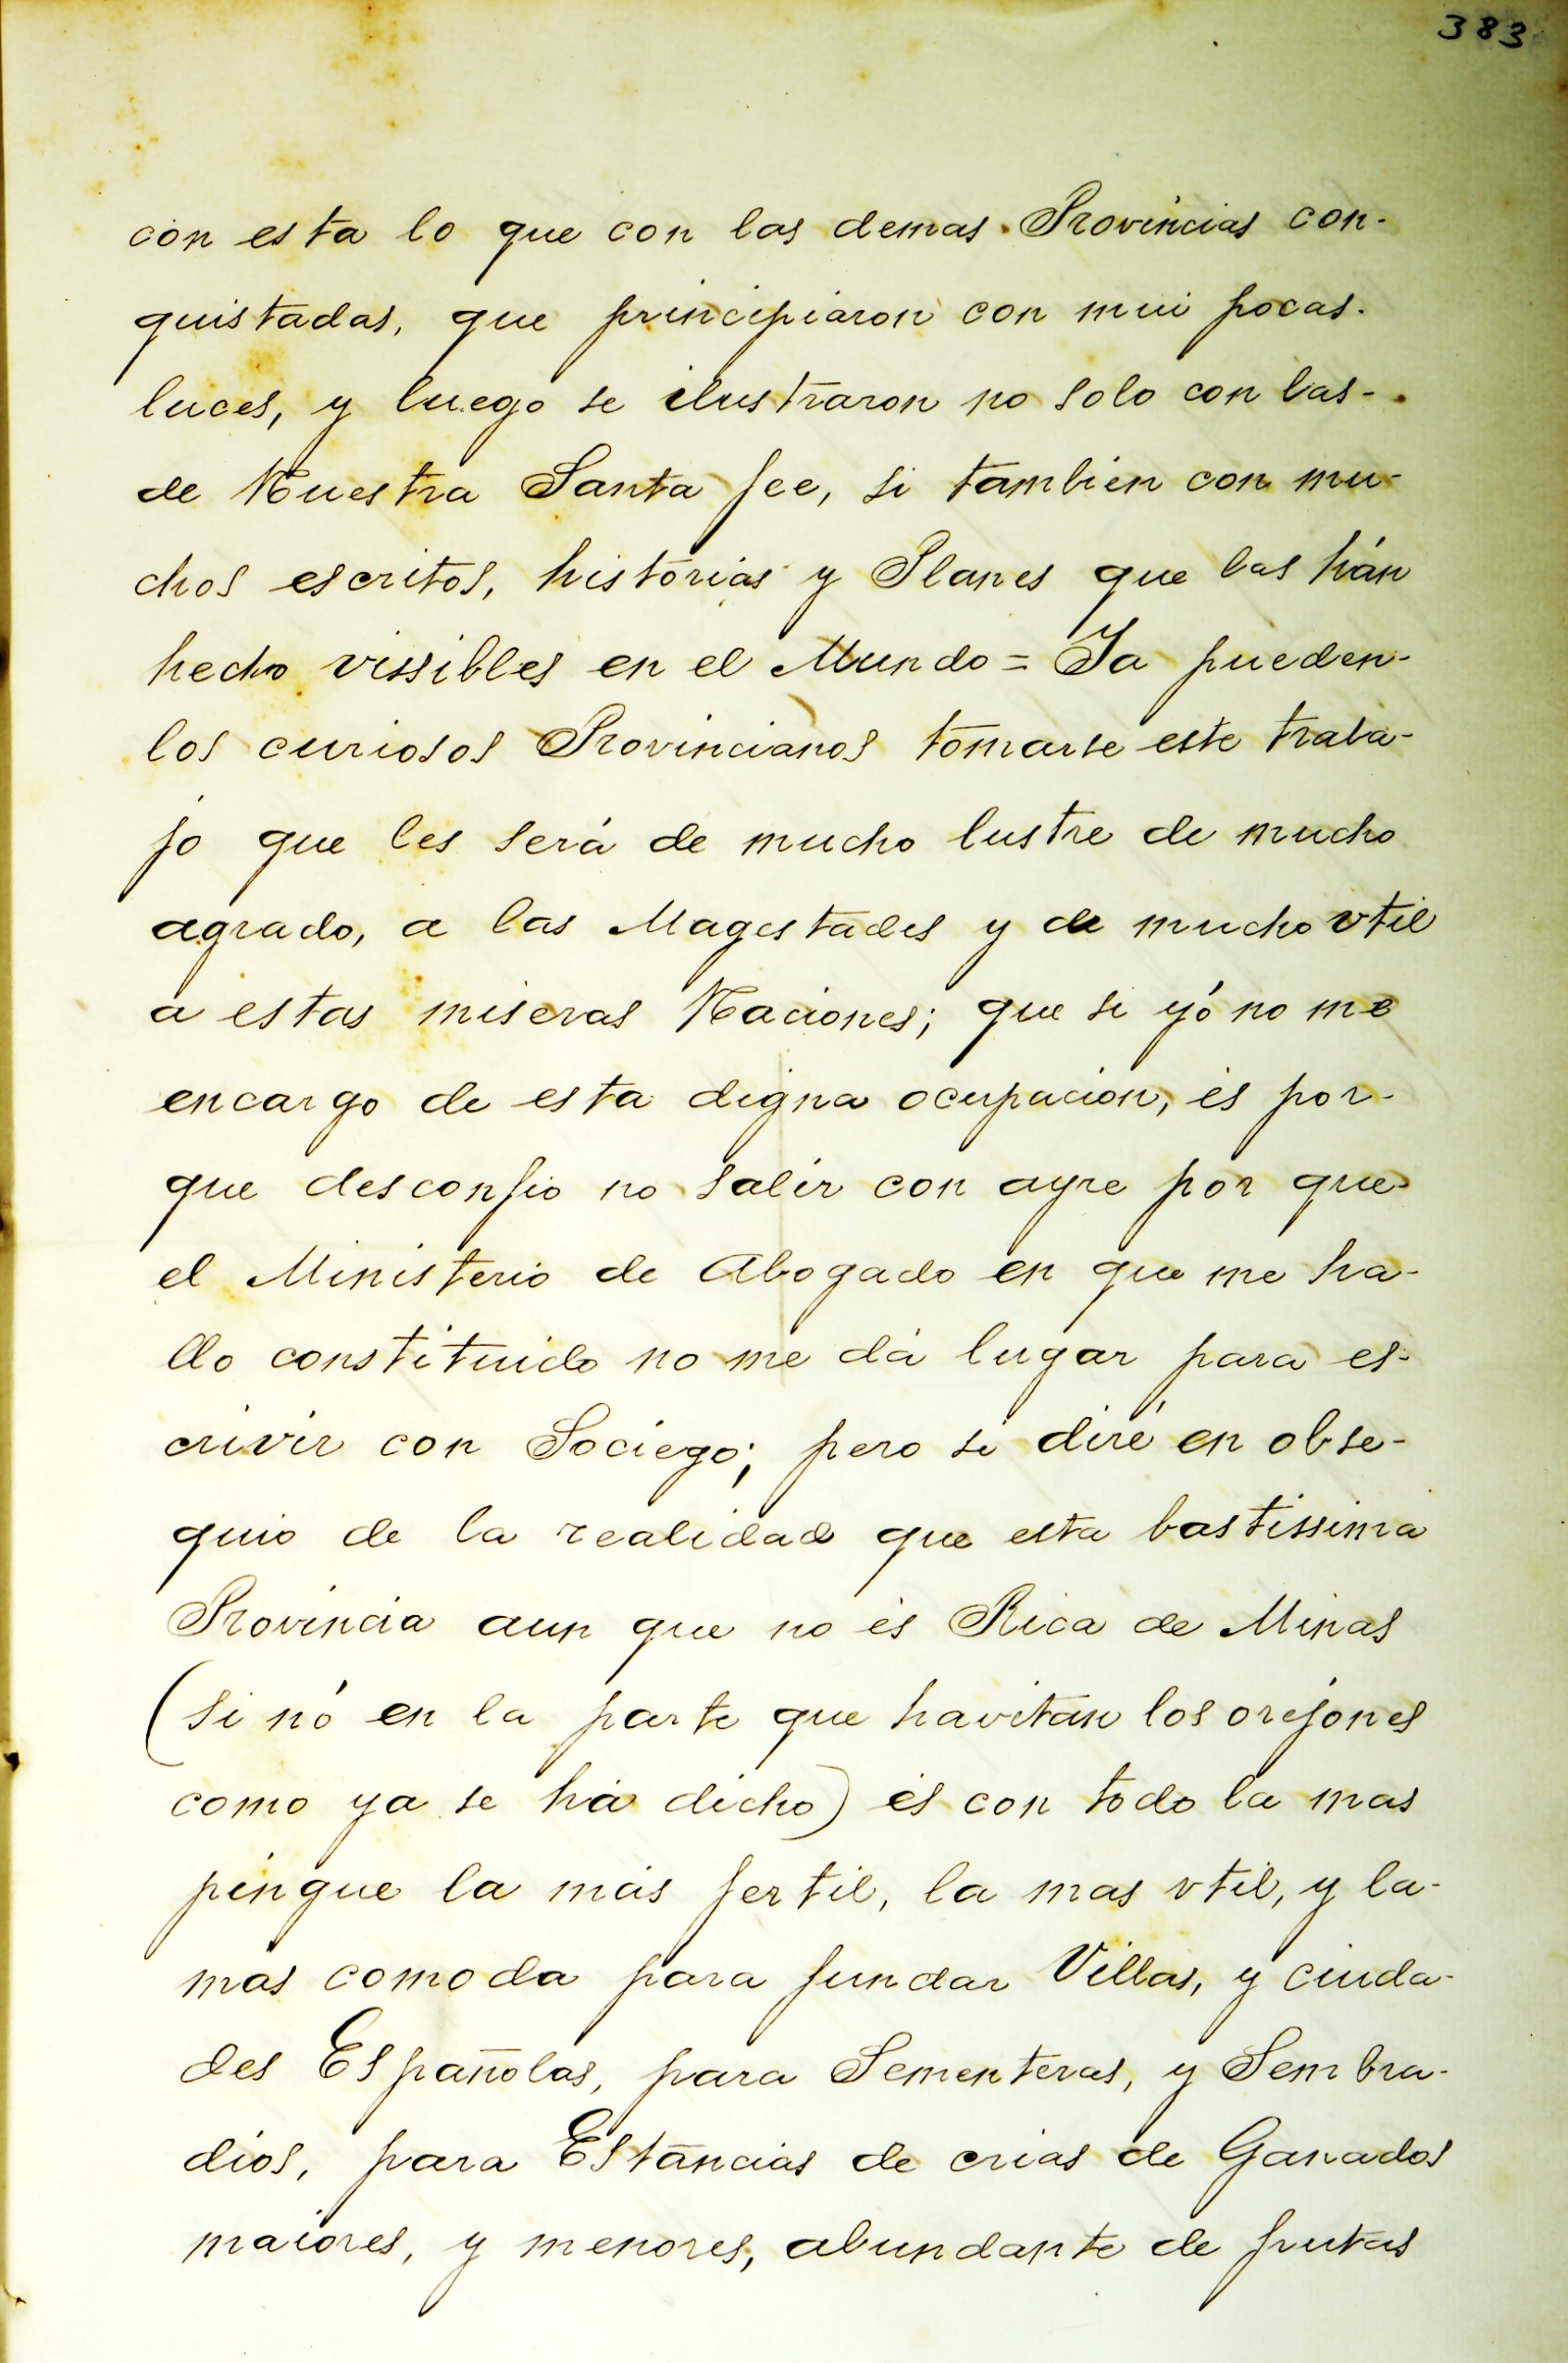 383
con esta lo que con las demas Provincias con-
quistadas, que principiaron con mui pocas.
luces, y luego se ilustraron no solo con las-
de Nuestra Santa fee, si tambien con mu-
chos escritos, historias y Planes que las hán
hecho vissibles en el Mundo = Ya pueden-
los curiosos Provincianos tomarse este traba-
jo que les será de mucho lustre de mucho
agrado, a las Magestades y de mucho vtil
a estas miseras Naciones; que si yó no me
encargo de esta digna ocupacion, és por-
que desconfio no salir con ayre por que
el Ministerio de Abogado en que me ha-
llo constituido no me dá lugar para es-
crivir con Sociego; pero si diré en obse-
quio de la realidad que esta bastissima
Provincia aun que no és Rica de Minas
(si nó en la parte que havitan los orejones
como ya se há dicho) és con todo la mas
pingue la más fertil, la mas vtil, y la-
mas comoda para fundar Villas, y ciuda-
des Españolas, para Sementeras, y Sembra-
dios, para Estancias de crias de Ganados
maiores, y menores, abundante de frutas